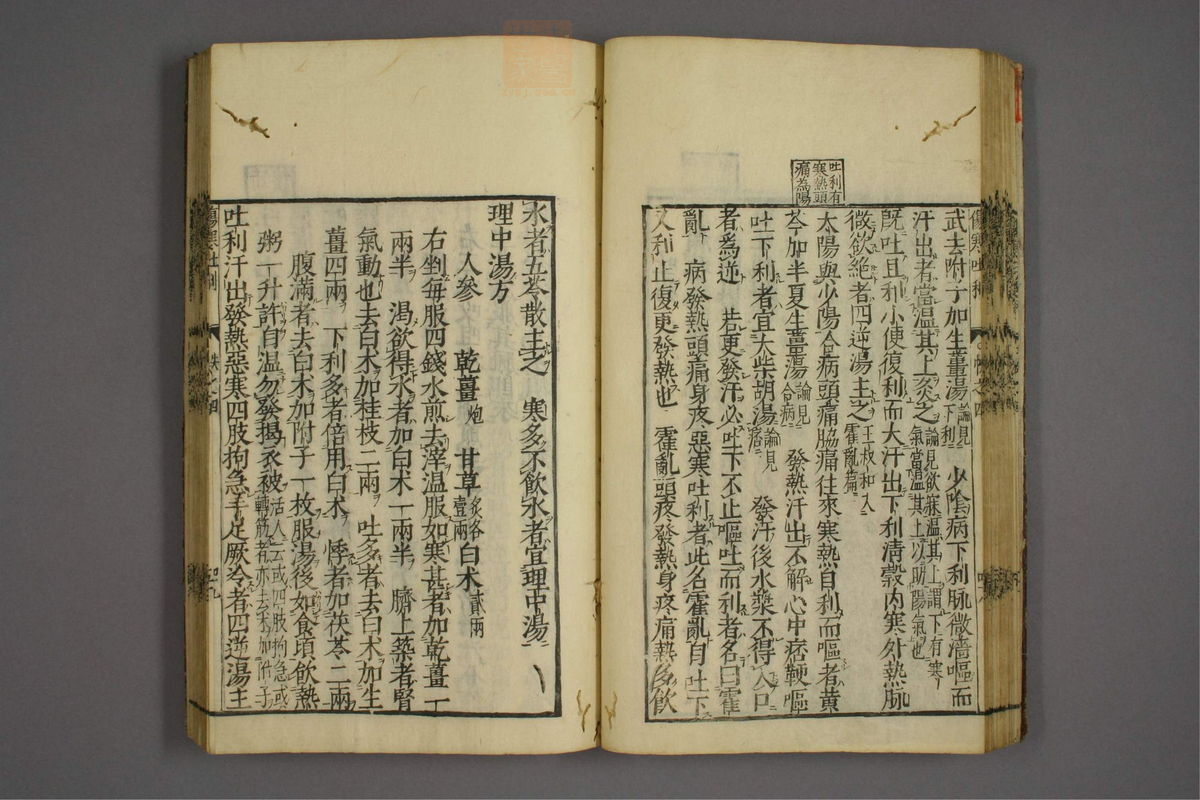 吐利有
寒熱頭
痛為陽
武去附子加生薑湯論見下利　少陰病下利脉微濇嘔而
汗出者當溫其上灸之論見欲寐溫其上謂下有寒氣當溫其上以助陽氣也
既吐且利小便復利而大汗出下利清穀内寒外熱脉
微欲絶者四逆湯主之王叔和入霍亂篇
太陽與少陽合病頭痛脇痛往來寒熱自利而嘔者黄
芩加半夏生薑湯論見合病　發熱汗出不解心中痞鞕嘔
吐下利者宜大柴胡湯論見痞　發汗後水藥不得入口
者爲逆　若更發汗必吐下不止嘔吐而利者名曰霍
亂　病發熱頭痛身疼惡寒吐利者此名霍亂自吐下
又利止復更發熱也　霍亂頭疼發熱身疼痛熱多飲
水者五苓散主之　寒多不飲水者宜理中湯
理中湯方
人參　乾薑炮　甘草炙各壹兩　白朮貳兩
右剉每服四錢水煎去滓温服如寒甚者加乾薑一
兩半　渇欲得水者加白朮一兩半　臍上築者腎
氣動也去白朮加桂枝二兩　吐多者去白朮加生
薑四兩　下利多者倍用白朮　悸者加茯苓二兩
腹滿者去白朮加附子一枚服湯後如食頃飲熱
粥一升許自温勿發揭衣被活人云或四肢拘急或轉筋者亦去朮加附子
吐利汗出發熱惡寒四肢拘急手足厥冷者四逆湯主